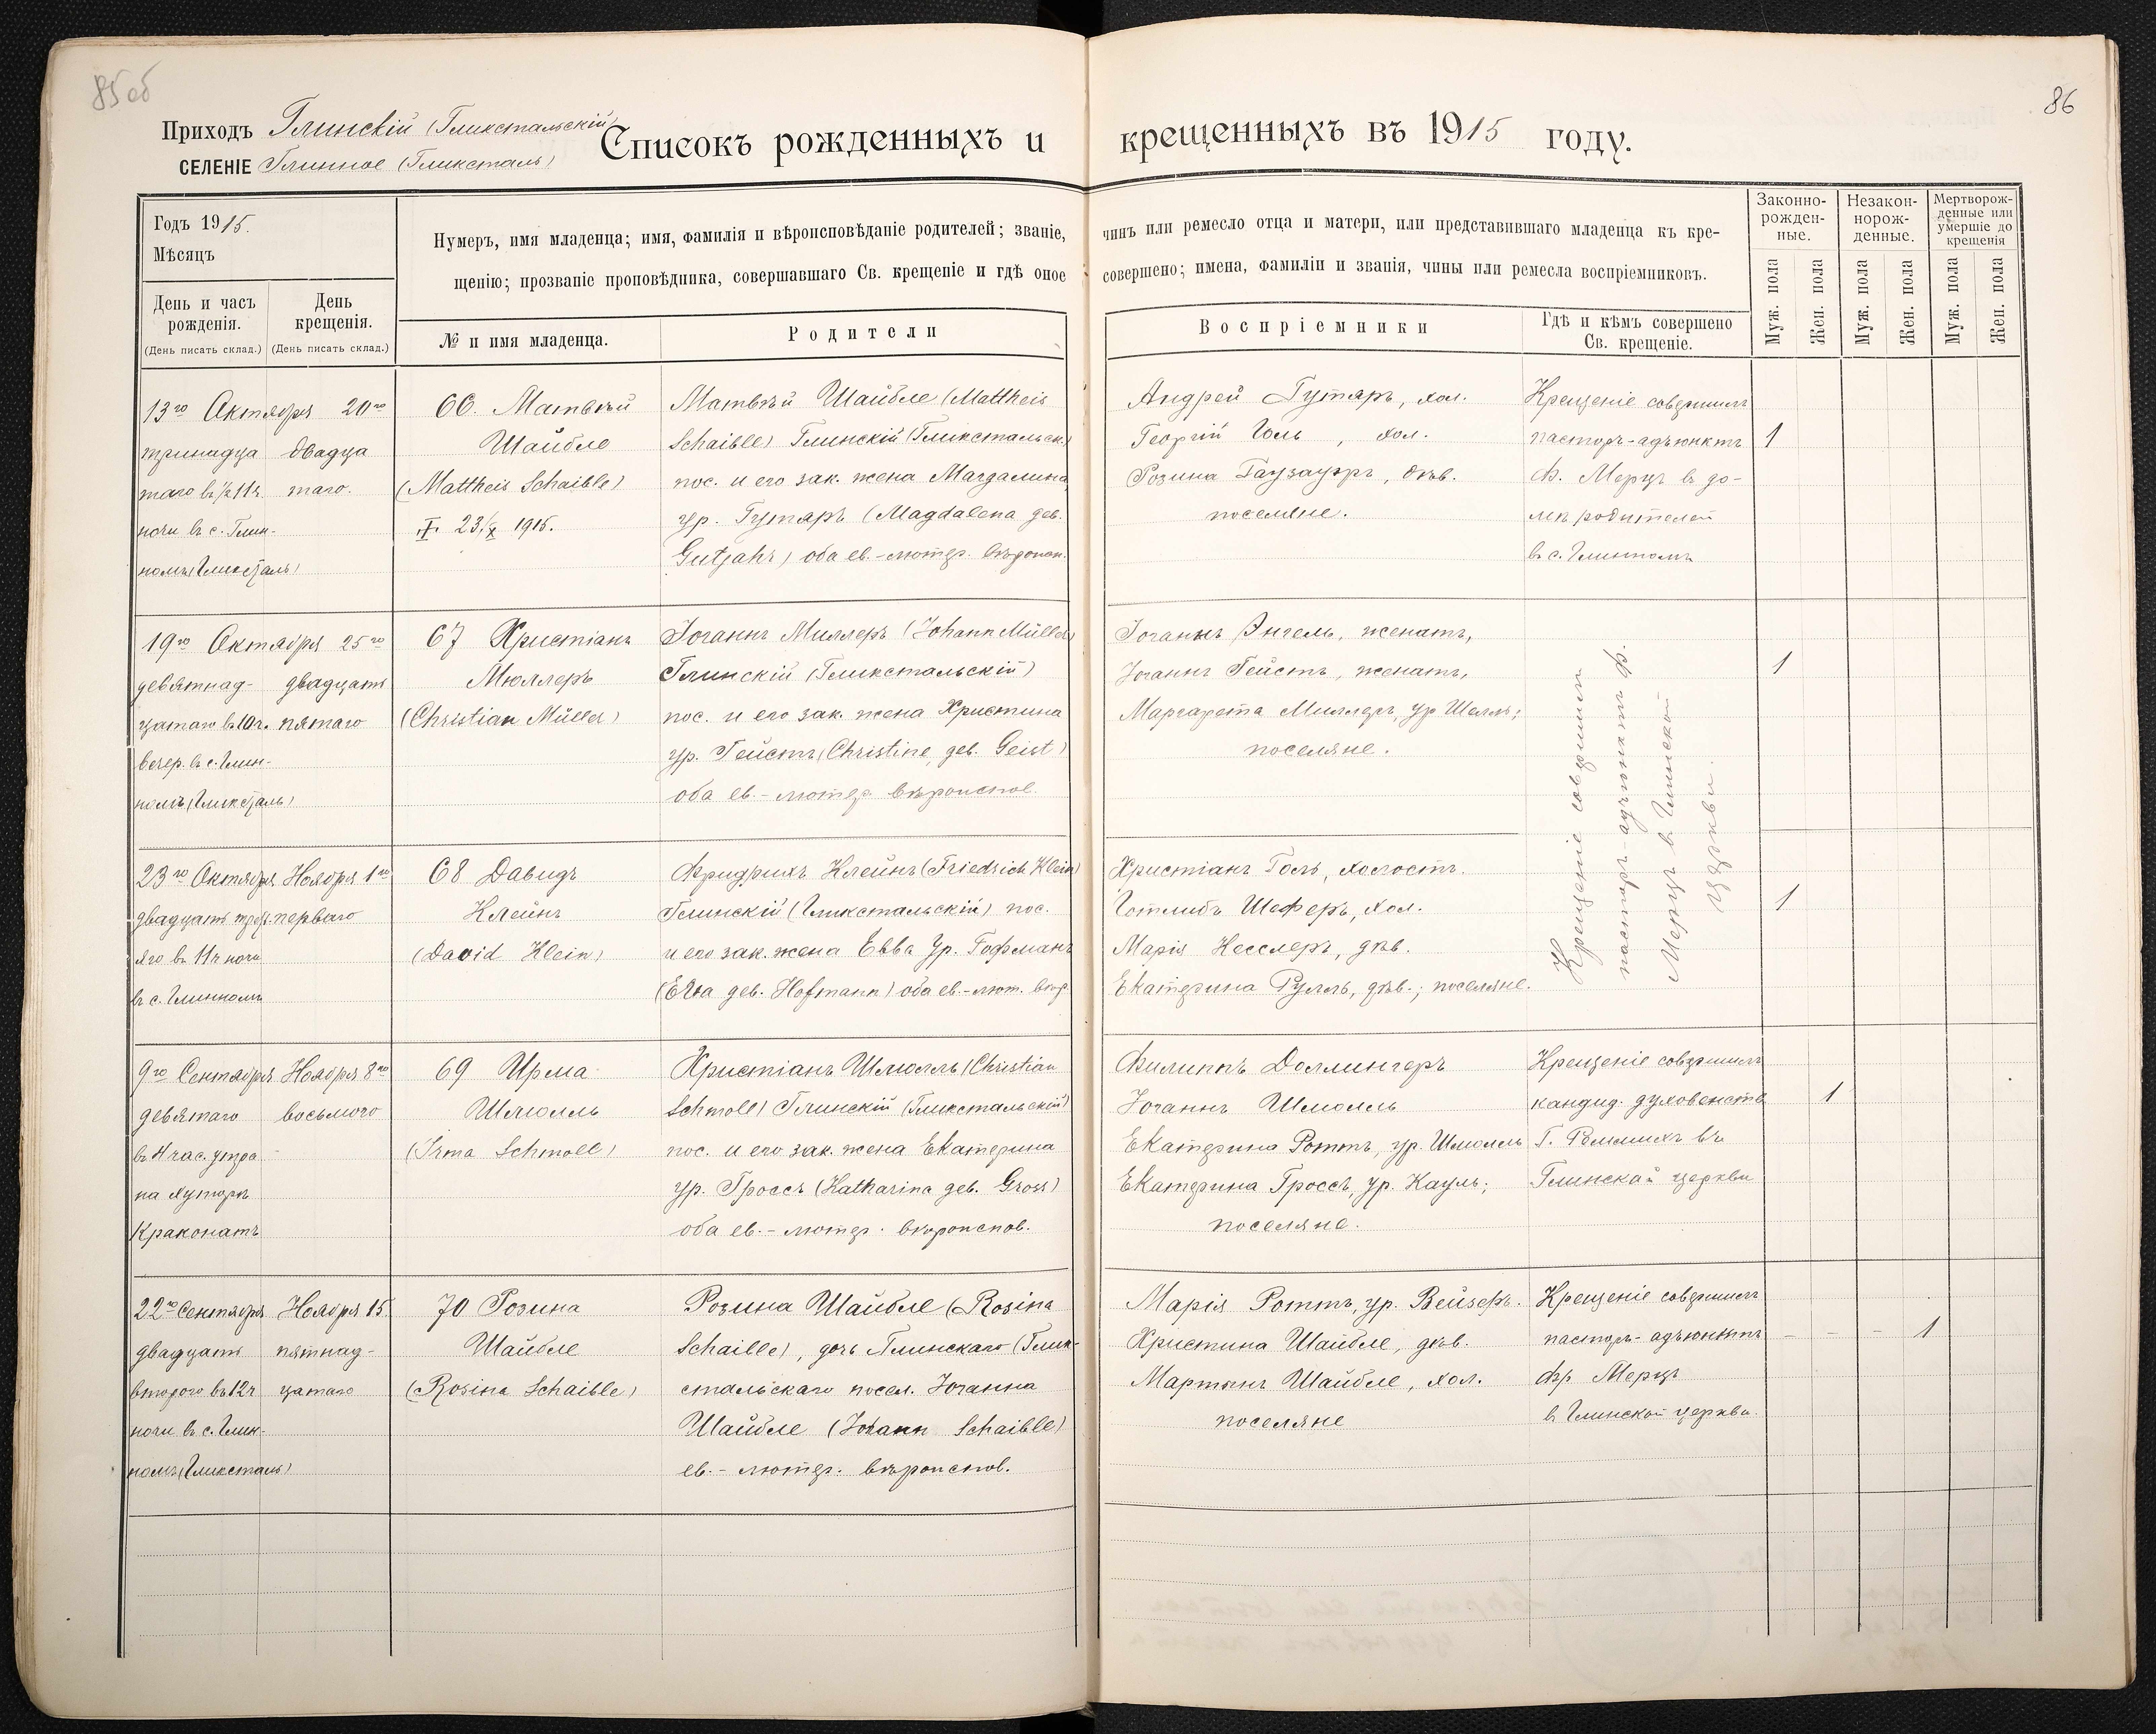 85об
86
Приходъ Глинскій (Гликстальскій)
СЕЛЕНІЕ Глинное (Гликсталь)
Списокъ рожденныхъ и крещенныхъ въ 1915 году.
Годъ 1915.
Мѣсяцъ
День и часъ рожденія.
(День писать склад.)
День крещенія.
(День писать склад.)
Нумеръ, имя младенца; имя, фамилія и вѣроисповѣданіе родителей; званіе, чинъ или ремесло отца и матери, или представившаго младенца къ кре-
щенію; прозваніе проповѣдника, совершавшаго Св. крещеніе и гдѣ оное совершено; имена, фамиліи и званія, чины или ремесла воспріемниковъ.
№ и имя младенца.
Родители
Воспріемники
Гдѣ и кѣмъ совершено
Св. крещеніе.
Законно-
рожден-
ные.
Незакон-
норож-
денные.
Мертворож-
денные или
умершіе до
крещенія
Муж. пола
Жен. пола
Муж. пола
Жен. пола
Муж. пола
Жен. пола
13го Октября
тринадца
таго въ ½11ч.
ночи въ с. Глин-
номъ (Гликсталь)
20го
двадца
таго.
66. Матвѣй
Шайбле
(Mattheis Schaible)
23/X 1915.
Матвѣй Шайбле (Mattheis
Schaible) Глинскій (Гликстальск.)
пос. и его зак. жена Магдалина
ур. Гутяръ (Magdalena geb.
Gutjahr) оба ев.-лютер. вѣроисп.
Андрей Гутяръ, хол.
Георгій Голь, хол.
Розина Гаузауэръ, дѣв.
поселяне.
Крещеніе совершилъ
пасторъ-адъюнктъ
Ф. Мерцъ въ до-
мѣ родителей
въ с. Глинномъ
1
19го Октября
девятнад-
цатаго въ 10ч.
вечер. въ с. Глин-
номъ (Гликсталь)
25го
двадцать
пятаго
67 Христіанъ
Мюллеръ
(Christian Müller)
Іоганнъ Миллеръ (Johann Müller)
Глинскій (Гликстальскій)
пос. и его зак. жена Христина
ур. Гейстъ (Christine, geb. Geist)
оба ев.-лютер. вѣроиспов.
Іоганнъ Энгель, женатъ,
Іоганнъ Гейстъ, женатъ,
Маргарета Миллеръ, ур. Шелль;
поселяне.
Крещеніе совершилъ
пасторъ-адъюнктъ Ф.
Мерцъ въ Глинской
церкви.
1
23го Октября
двадцать трет.
яго въ 11ч ночи
въ с. Глинномъ
Ноября 1го
перваго
68 Давидъ
Клейнъ
(David Klein)
Фридрихъ Клейнъ (Friedrich Klein)
Глинскій (Гликстальскій) пос.
и его зак. жена Евва ур. Гофманъ
(Eva geb. Hofmann) оба ев.-лют. вѣр.
Христіанъ Голь, холостъ.
Готлибъ Шеферъ, хол.
Марія Несслеръ, дѣв.
Екатерина Рулль, дѣв.; поселяне.
1
9го Сентября
девятаго
въ 4 час. утра
на хуторѣ
Краконатъ
Ноября 8го
восьмого
69 Ирма
Шмолль
(Irma Schmoll)
Христіанъ Шмолль (Christian
Schmoll) Глинскій (Гликстальскій)
пос. и его зак. жена Екатерина
ур. Гроссъ (Katharina geb. Gross)
оба ев.-лютер. вѣроиспов.
Филиппъ Доллингеръ
Іоганнъ Шмолль
Екатерина Роттъ, ур. Шмолль
Екатерина Гроссъ, ур. Кауль;
поселяне.
Крещеніе совершилъ
кандид. духовенства
Г. въ
Глинской церкви
1
22го Сентября
двадцать
второго въ 12ч
ночи въ с. Глин-
номъ (Гликсталь)
Ноября 15
пятнад-
цатаго
70 Розина
Шайбле
(Rosina Schaible)
Розина Шайбле (Rosina
Schaible), дочь Глинскаго (Глик-
стальскаго посел. Іоганна
Шайбле (Johann Schaible)
ев.-лютер. вѣроиспов.
Марія Роттъ, ур. Вейзеръ.
Христина Шайбле, дѣв.
Мартынъ Шайбле, хол.
поселяне
Крещеніе совершилъ
пасторъ-адъюнктъ
Фр Мерцъ
въ Глинской церкви.
- - - 1